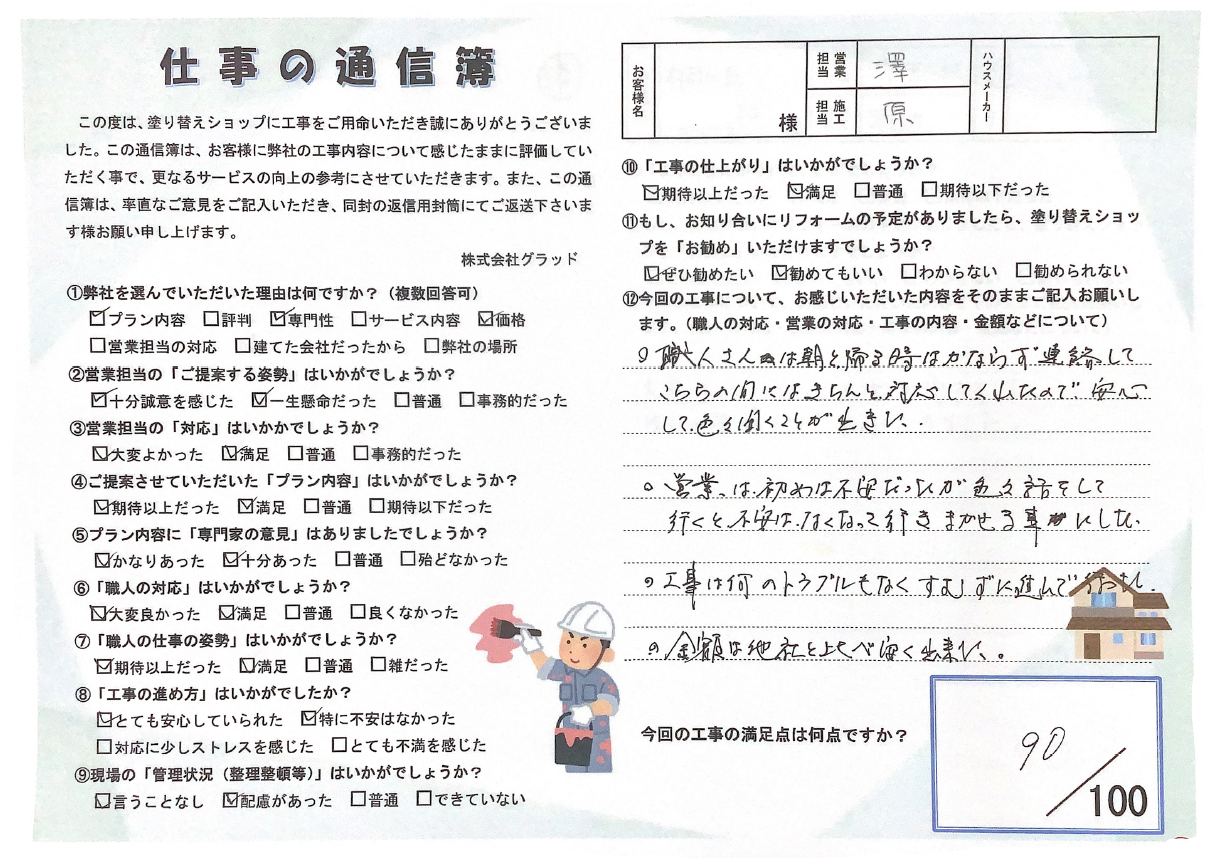 仕事の通信簿
この度は、塗り替えショップに工事をご用命いただき誠にありがとうございま
した。この通信簿は、お客様に弊社の工事内容について感じたままに評価してい
ただく事で、更なるサービスの向上の参考にさせていただきます。また、この通
信簿は、率直なご意見をご記入いただき、同封の返信用封筒にてご返送下さいま
す様お願い申し上げます。
株式会社グラッド
①弊社を選んでいただいた理由は何ですか？（複数回答可）
☑プラン内容 □評判 ☑専門性 □サービス内容 ☑価格
□営業担当の対応 □建てた会社だったから □弊社の場所
②営業担当の「ご提案する姿勢」はいかがでしょうか？
☑十分誠意を感じた ☑一生懸命だった □普通 □事務的だった
③営業担当の「対応」はいかかでしょうか？
☑大変よかった ☑満足 □普通 □事務的だった
④ご提案させていただいた「プラン内容」はいかがでしょうか？
☑期待以上だった ☑満足 □普通 □期待以下だった
⑤プラン内容に「専門家の意見」はありましたでしょうか？
☑かなりあった ☑十分あった □普通 □殆どなかった
⑥「職人の対応」はいかがでしょうか？
☑大変良かった ☑満足 □普通 □良くなかった
⑦「職人の仕事の姿勢」はいかがでしょうか？
☑期待以上だった ☑満足 □普通 □雑だった
⑧「工事の進め方」はいかがでしたか？
☑とても安心していられた ☑特に不安はなかった
□対応に少しストレスを感じた □とても不満を感じた
⑨現場の「管理状況（整理整頓等）」はいかがでしょうか？
☑言うことなし ☑配慮があった □普通 □できていない
お客様名 様 営業担当 澤 ハウスメーカー
施工担当 原
⑩「工事の仕上がり」はいかがでしょうか？
☑期待以上だった ☑満足 □普通 □期待以下だった
⑪もし、お知り合いにリフォームの予定がありましたら、塗り替えショッ
プを「お勧め」いただけますでしょうか？
☑ぜひ勧めたい ☑勧めてもいい □わからない □勧められない
⑫今回の工事について、お感じいただいた内容をそのままご記入お願いし
ます。（職人の対応・営業の対応・工事の内容・金額などについて）
○職人さんは朝と帰る時はかならず連絡して
こちらの問にはきちんと対応してくれたので安心
して色々聞くことが出きた。
○営業は初めは不安だったが色々話をして
行くと不安はなくなって行きまかせる事にした。
○工事は何のトラブルもなくすむずに進んで行った。
○金額は他社と比べ安く出来た。
今回の工事の満足点は何点ですか？
90／100